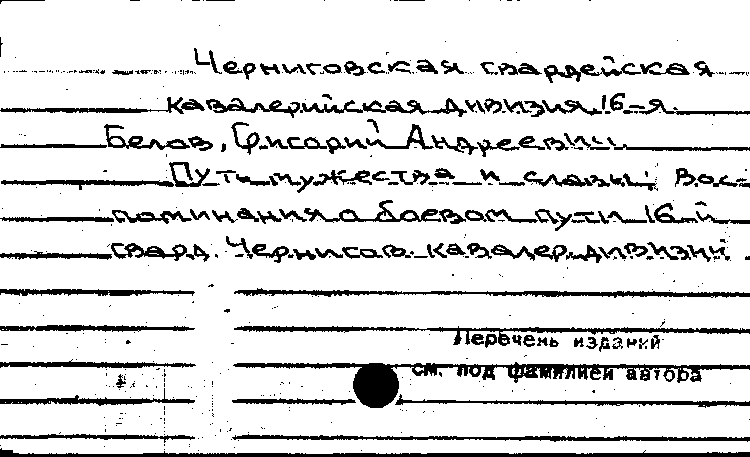 Черниговская гвардейская
кавалерийская дивизия, 16-я.
Белов, Григорий Андреевич.
Путь мужества и славы: Вос-
поминания о боевом пути 16-й
гвард. Чернигов. кавалер. дивизии
Перечень изданий
см. под фамилией автора